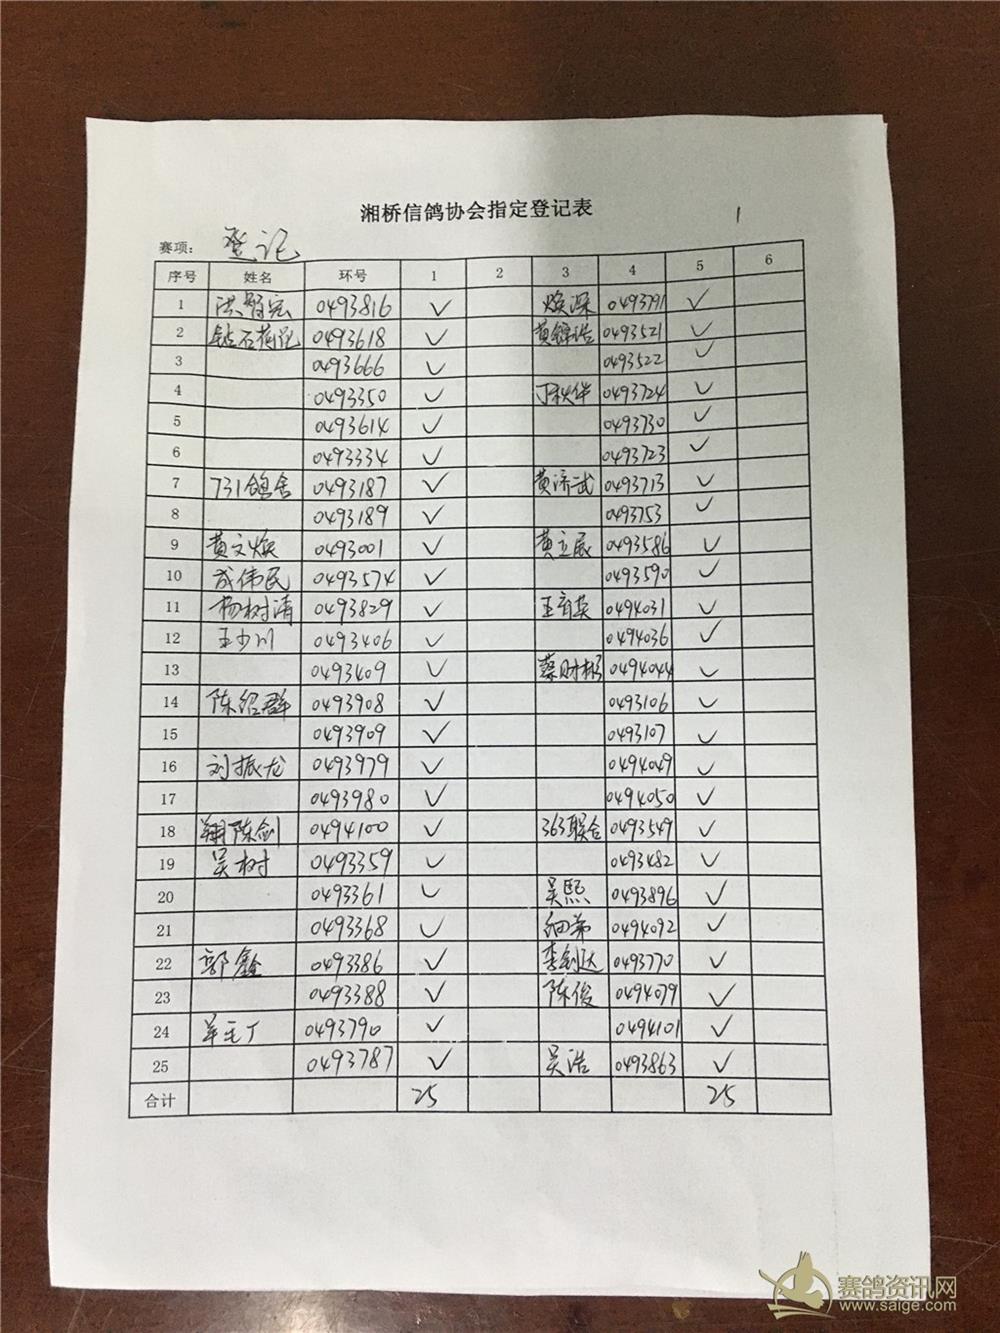 湘桥信鸽协会指定登记表
1
赛项: 登记
序号 姓名 环号 1 2 3 4 5 6
1 洪 0493816 ✓ 焕深 0493791 ✓
2 钻石荷花 0493618 ✓ 黄锦浩 0493521 ✓
3 0493666 ✓ 0493522 ✓
4 0493350 ✓ 丁秋华 0493724 ✓
5 0493614 ✓ 0493730 ✓
6 0493334 ✓ 0493723 ✓
7 731鸽舍 0493187 ✓ 黄济武 0493713 ✓
8 0493189 ✓ 0493753 ✓
9 黄文焕 0493001 ✓ 黄立辰 0493586 ✓
10 成伟民 0493574 ✓ 0493590 ✓
11 杨树清 0493829 ✓ 王育英 0494031 ✓
12 王少川 0493406 ✓ 0494036 ✓
13 0493409 ✓ 蔡财彬 0494044 ✓
14 陈绍群 0493908 ✓ 0493106 ✓
15 0493909 ✓ 0493107 ✓
16 刘振龙 0493979 ✓ 0494049 ✓
17 0493980 ✓ 0494050 ✓
18 翔陈剑 0494100 ✓ 363联合 0493549 ✓
19 吴树 0493359 ✓ 0493482 ✓
20 0493361 ✓ 吴熙 0493896 ✓
21 0493368 ✓ 细弟 0494092 ✓
22 郭鑫 0493386 ✓ 李剑达 0493770 ✓
23 0493388 ✓ 陈俊 0494079 ✓
24 羊毛厂 0493790 ✓ 0494101 ✓
25 0493787 ✓ 吴浩 0493863 ✓
合计 25 25
赛鸽资讯网
www.saige.com